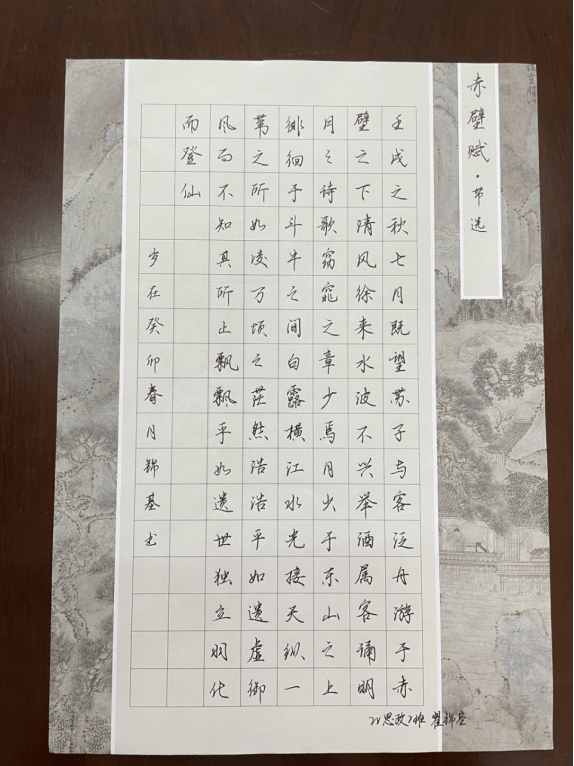 赤壁赋·节选
壬戌之秋七月既望苏子与客泛舟游于赤
壁之下清风徐来水波不兴举酒属客诵明
月之诗歌窈窕之章少焉月出于东山之上
徘徊于斗牛之间白露横江水光接天纵一
苇之所如凌万顷之茫然浩浩乎如遗虚御
风而不知其所止飘飘乎如遗世独立羽化
而登仙
岁在癸卯春月锦基书
思政班 瞿锦基